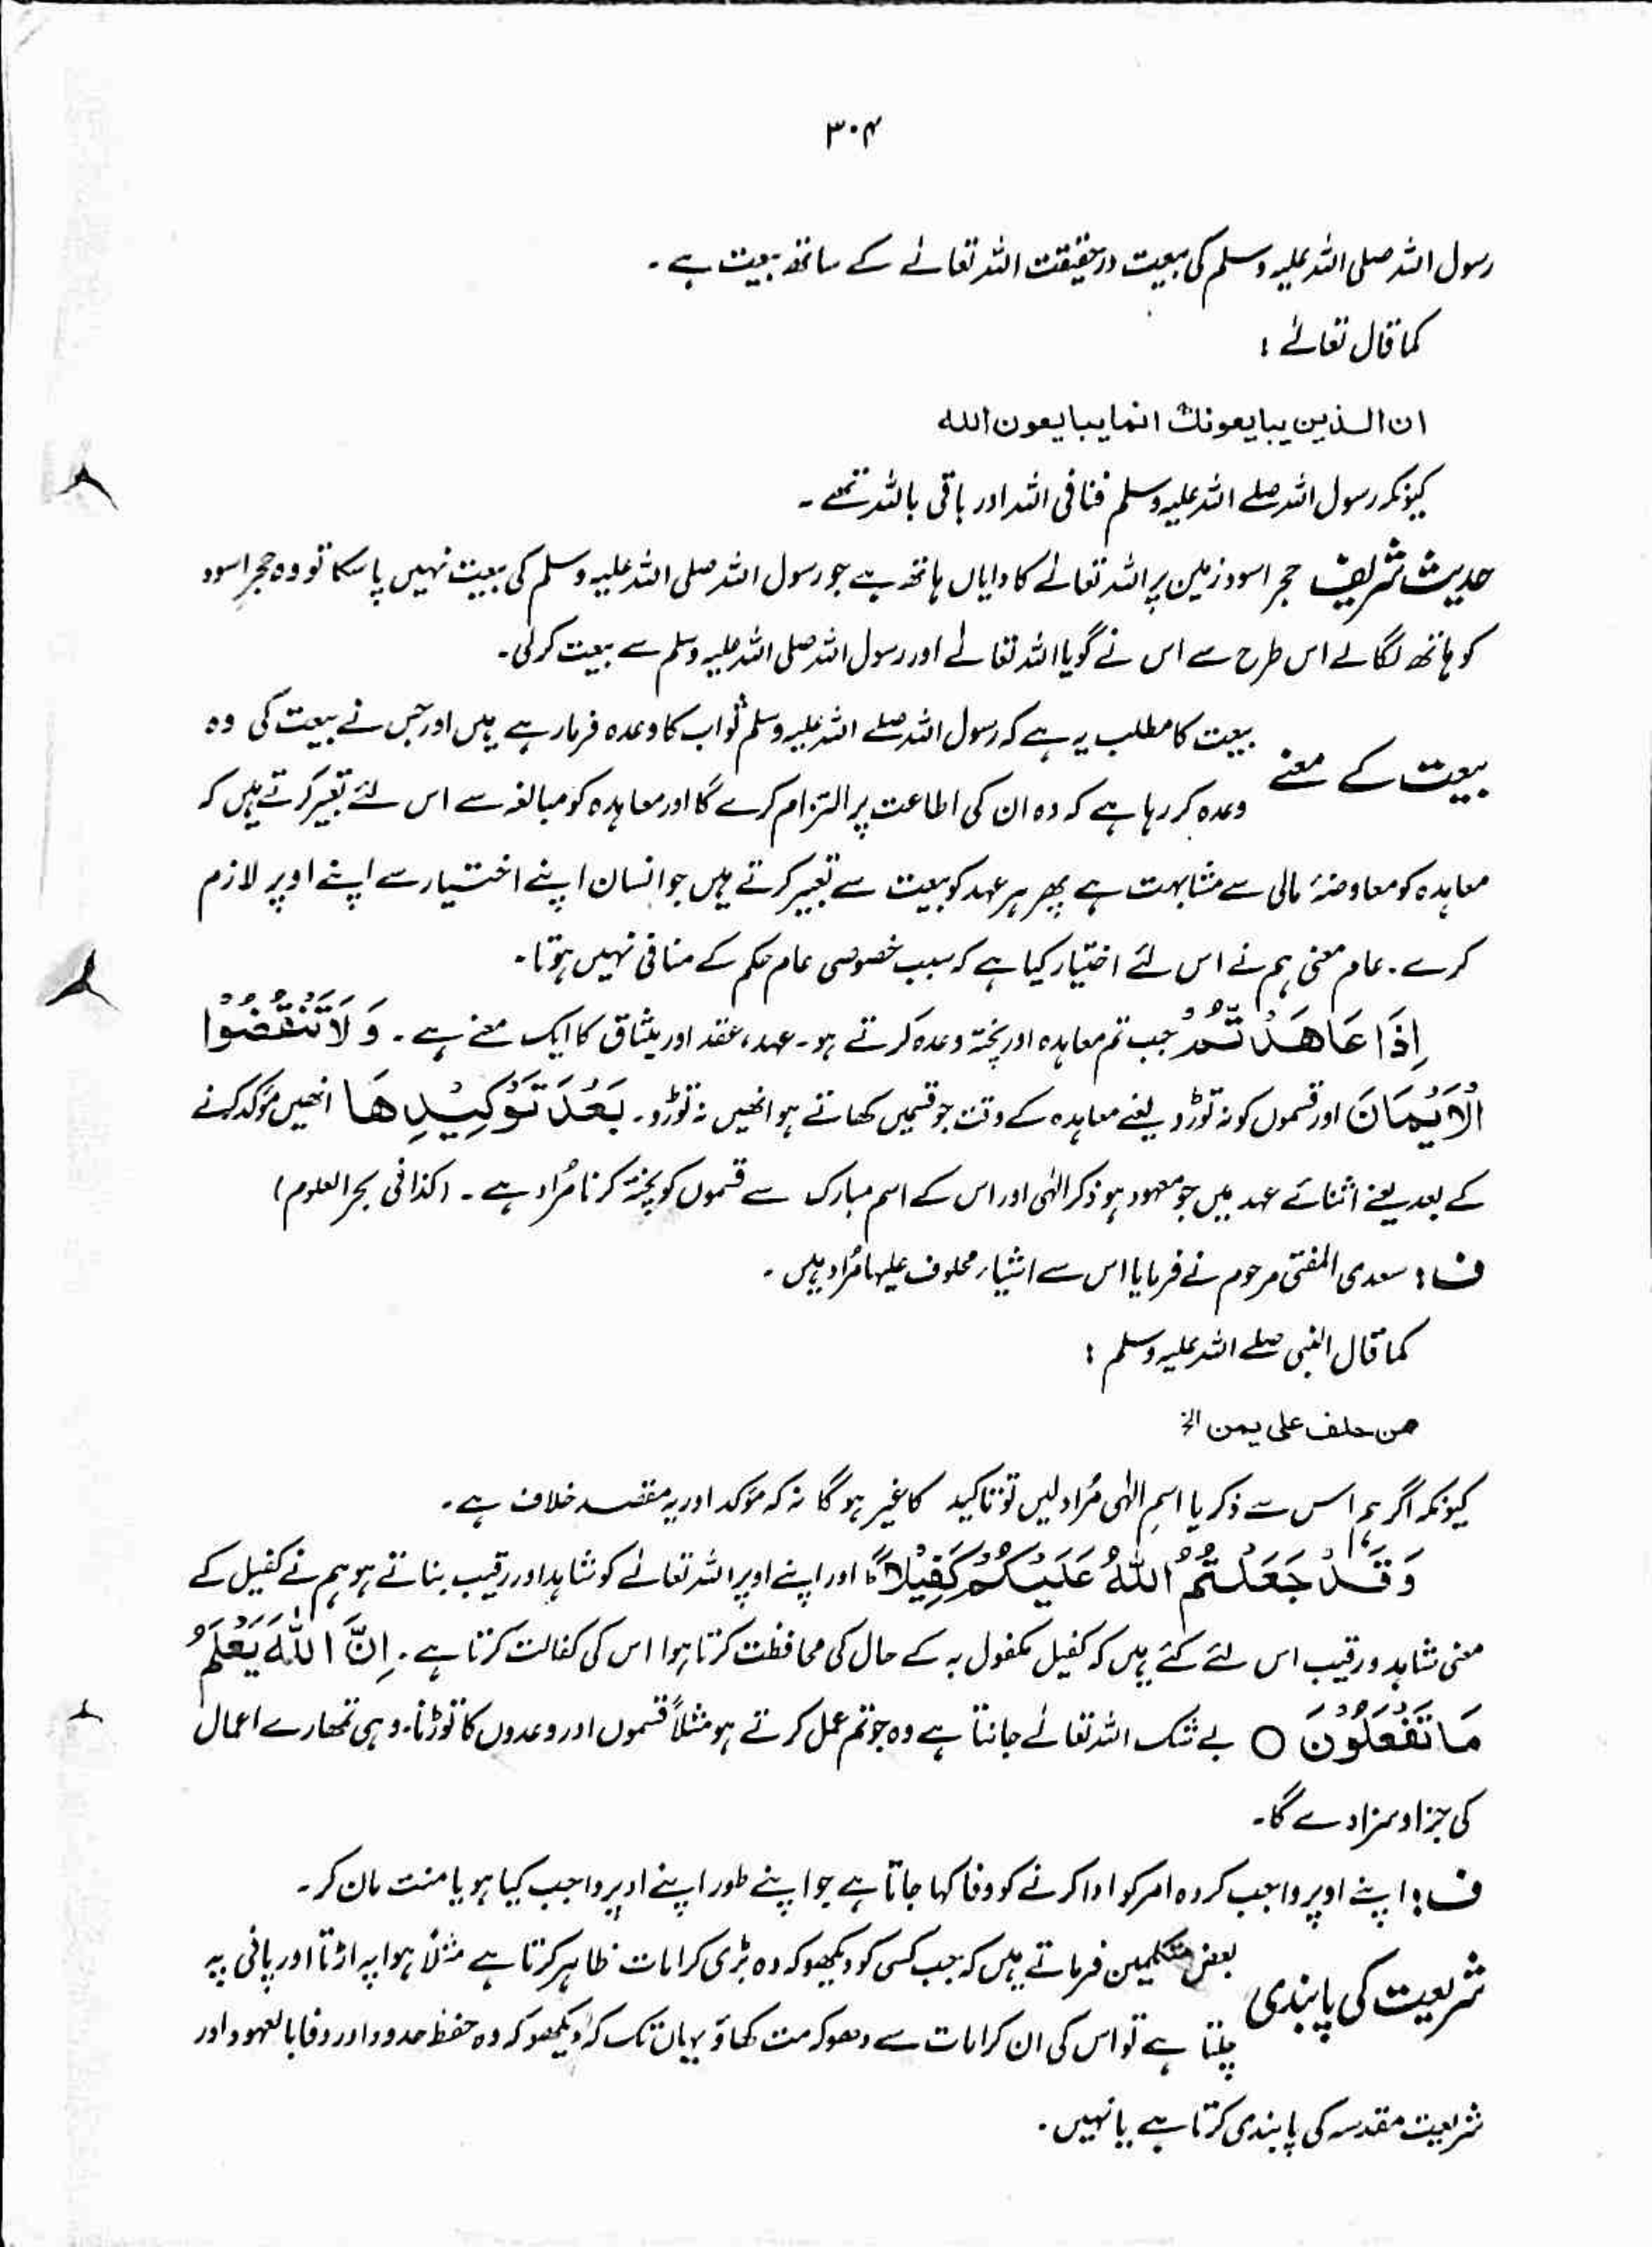 ۳۰۴
رسول اللہ صلی اللہ علیہ وسلم کی بیعت درحقیقت اللہ تعالےٰ کے ساتھ بیعت ہے ۔
کما قال تعالےٰ :
ان الذین یبایعونک انما یبایعون اللہ
کیونکہ رسول اللہ صلے اللہ علیہ وسلم فنا فی اللہ اور باقی باللہ تھے ۔
حدیث شریف حجر اسود زمین پر اللہ تعالےٰ کا دایاں ہاتھ ہے جو رسول اللہ صلی اللہ علیہ وسلم کی بیعت نہیں پا سکا تو وہ حجرِ اسود
کو ہاتھ لگا لے اس طرح سے اس نے گویا اللہ تعالےٰ اور رسول اللہ صلی اللہ علیہ وسلم سے بیعت کرلی ۔
بیعت کے معنے بیعت کا مطلب یہ ہے کہ رسول اللہ صلے اللہ علیہ وسلم ثواب کا وعدہ فرما رہے ہیں اور جس نے بیعت کی وہ
وعدہ کر رہا ہے کہ وہ ان کی اطاعت پر التزام کرے گا اور معاہدہ کو مبالغہ سے اس لئے تعبیر کرتے ہیں کہ
معاہدہ کو معاوضۂ مالی سے مشابہت ہے پھر ہر عہد کو بیعت سے تعبیر کرتے ہیں جو انسان اپنے اختیار سے اپنے اوپر لازم
کرے ۔ عام معنی ہم نے اس لئے اختیار کیا ہے کہ سبب خصوصی عام حکم کے منافی نہیں ہوتا ۔
اِذَا عَاھَدْتُّمْ جب تم معاہدہ اور پختہ وعدہ کرتے ہو ۔ عہد، عقد اور میثاق کا ایک معنے ہے ۔ وَلَا تَنْقُضُوا
الْاَیْمَانَ اور قسموں کو نہ توڑو یعنے معاہدہ کے وقت جو قسمیں کھاتے ہو انھیں نہ توڑو ۔ بَعْدَ تَوْکِیْدِھَا انھیں مؤکد کرنے
کے بعد یعنے اثنائے عہد میں جو معہود ہو ذکر الٰہی اور اس کے اسم مبارک سے قسموں کو پختہ کرنا مُراد ہے ۔ (کذا فی بحر العلوم)
ف : سعدی المفتی مرحوم نے فرمایا اس سے اشیاء محلوف علیہا مُراد ہیں ۔
کما قال النبی صلے اللہ علیہ وسلم :
من حلف علی یمن الخ
کیونکہ اگر ہم اس سے ذکر یا اسمِ الٰہی مُراد لیں تو تاکید کا غیر ہو گا نہ کہ مؤکد اور یہ مقصد خلاف ہے ۔
وَقَدْ جَعَلْتُمُ اللّٰہَ عَلَیْکُمْ کَفِیْلًا ؕ اور اپنے اوپر اللہ تعالےٰ کو شاہد اور رقیب بناتے ہو ہم نے کفیل کے
معنی شاہد و رقیب اس لئے کئے ہیں کہ کفیل مکفول بہ کے حال کی محافظت کرتا ہوا اس کی کفالت کرتا ہے ۔ اِنَّ اللّٰہَ یَعْلَمُ
مَا تَفْعَلُوْنَ ○ بے شک اللہ تعالےٰ جانتا ہے وہ جو تم عمل کرتے ہو مثلاً قسموں اور وعدوں کا توڑنا ۔ وہی تمھارے اعمال
کی جزا و سزا دے گا ۔
ف : اپنے اوپر واجب کردہ امر کو ادا کرنے کو وفا کہا جاتا ہے جو اپنے طور اپنے اوپر واجب کیا ہو یا منت مان کر ۔
شریعت کی پابندی بعض متکلمین فرماتے ہیں کہ جب کسی کو دیکھو کہ وہ بڑی کرامات ظاہر کرتا ہے مثلاً ہوا پہ اڑتا اور پانی پہ
چلتا ہے تو اس کی ان کرامات سے دھوکہ مت کھاؤ یہاں تک کہ دیکھو کہ وہ حفظ حدود اور وفا بالعہود اور
شریعت مقدسہ کی پابندی کرتا ہے یا نہیں ۔